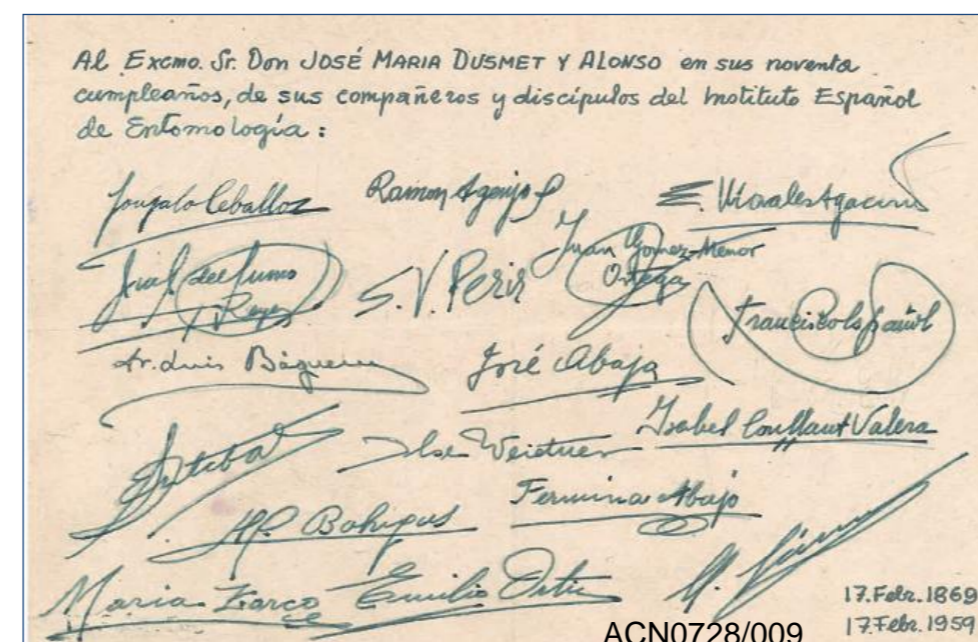 Al Excmo. Sr. Don JOSÉ MARIA DUSMET Y ALONSO en sus noventa
cumpleaños, de sus compañeros y discípulos del Instituto Español
de Entomología:
Gonzalo Ceballos Ramon Agenjo E. Morales Agacino
del Junco Reyes S. V. Peris Juan Gomez-Menor Ortega Francisco Español
Dr. Luis Báguena José Abajo
Ilse Isabel Coullaut Valera
Bohigas Fermina Abajo
Maria Zarco Emilio Ortiz
17. Febr. 1869
17. Febr. 1959
ACN0728/009